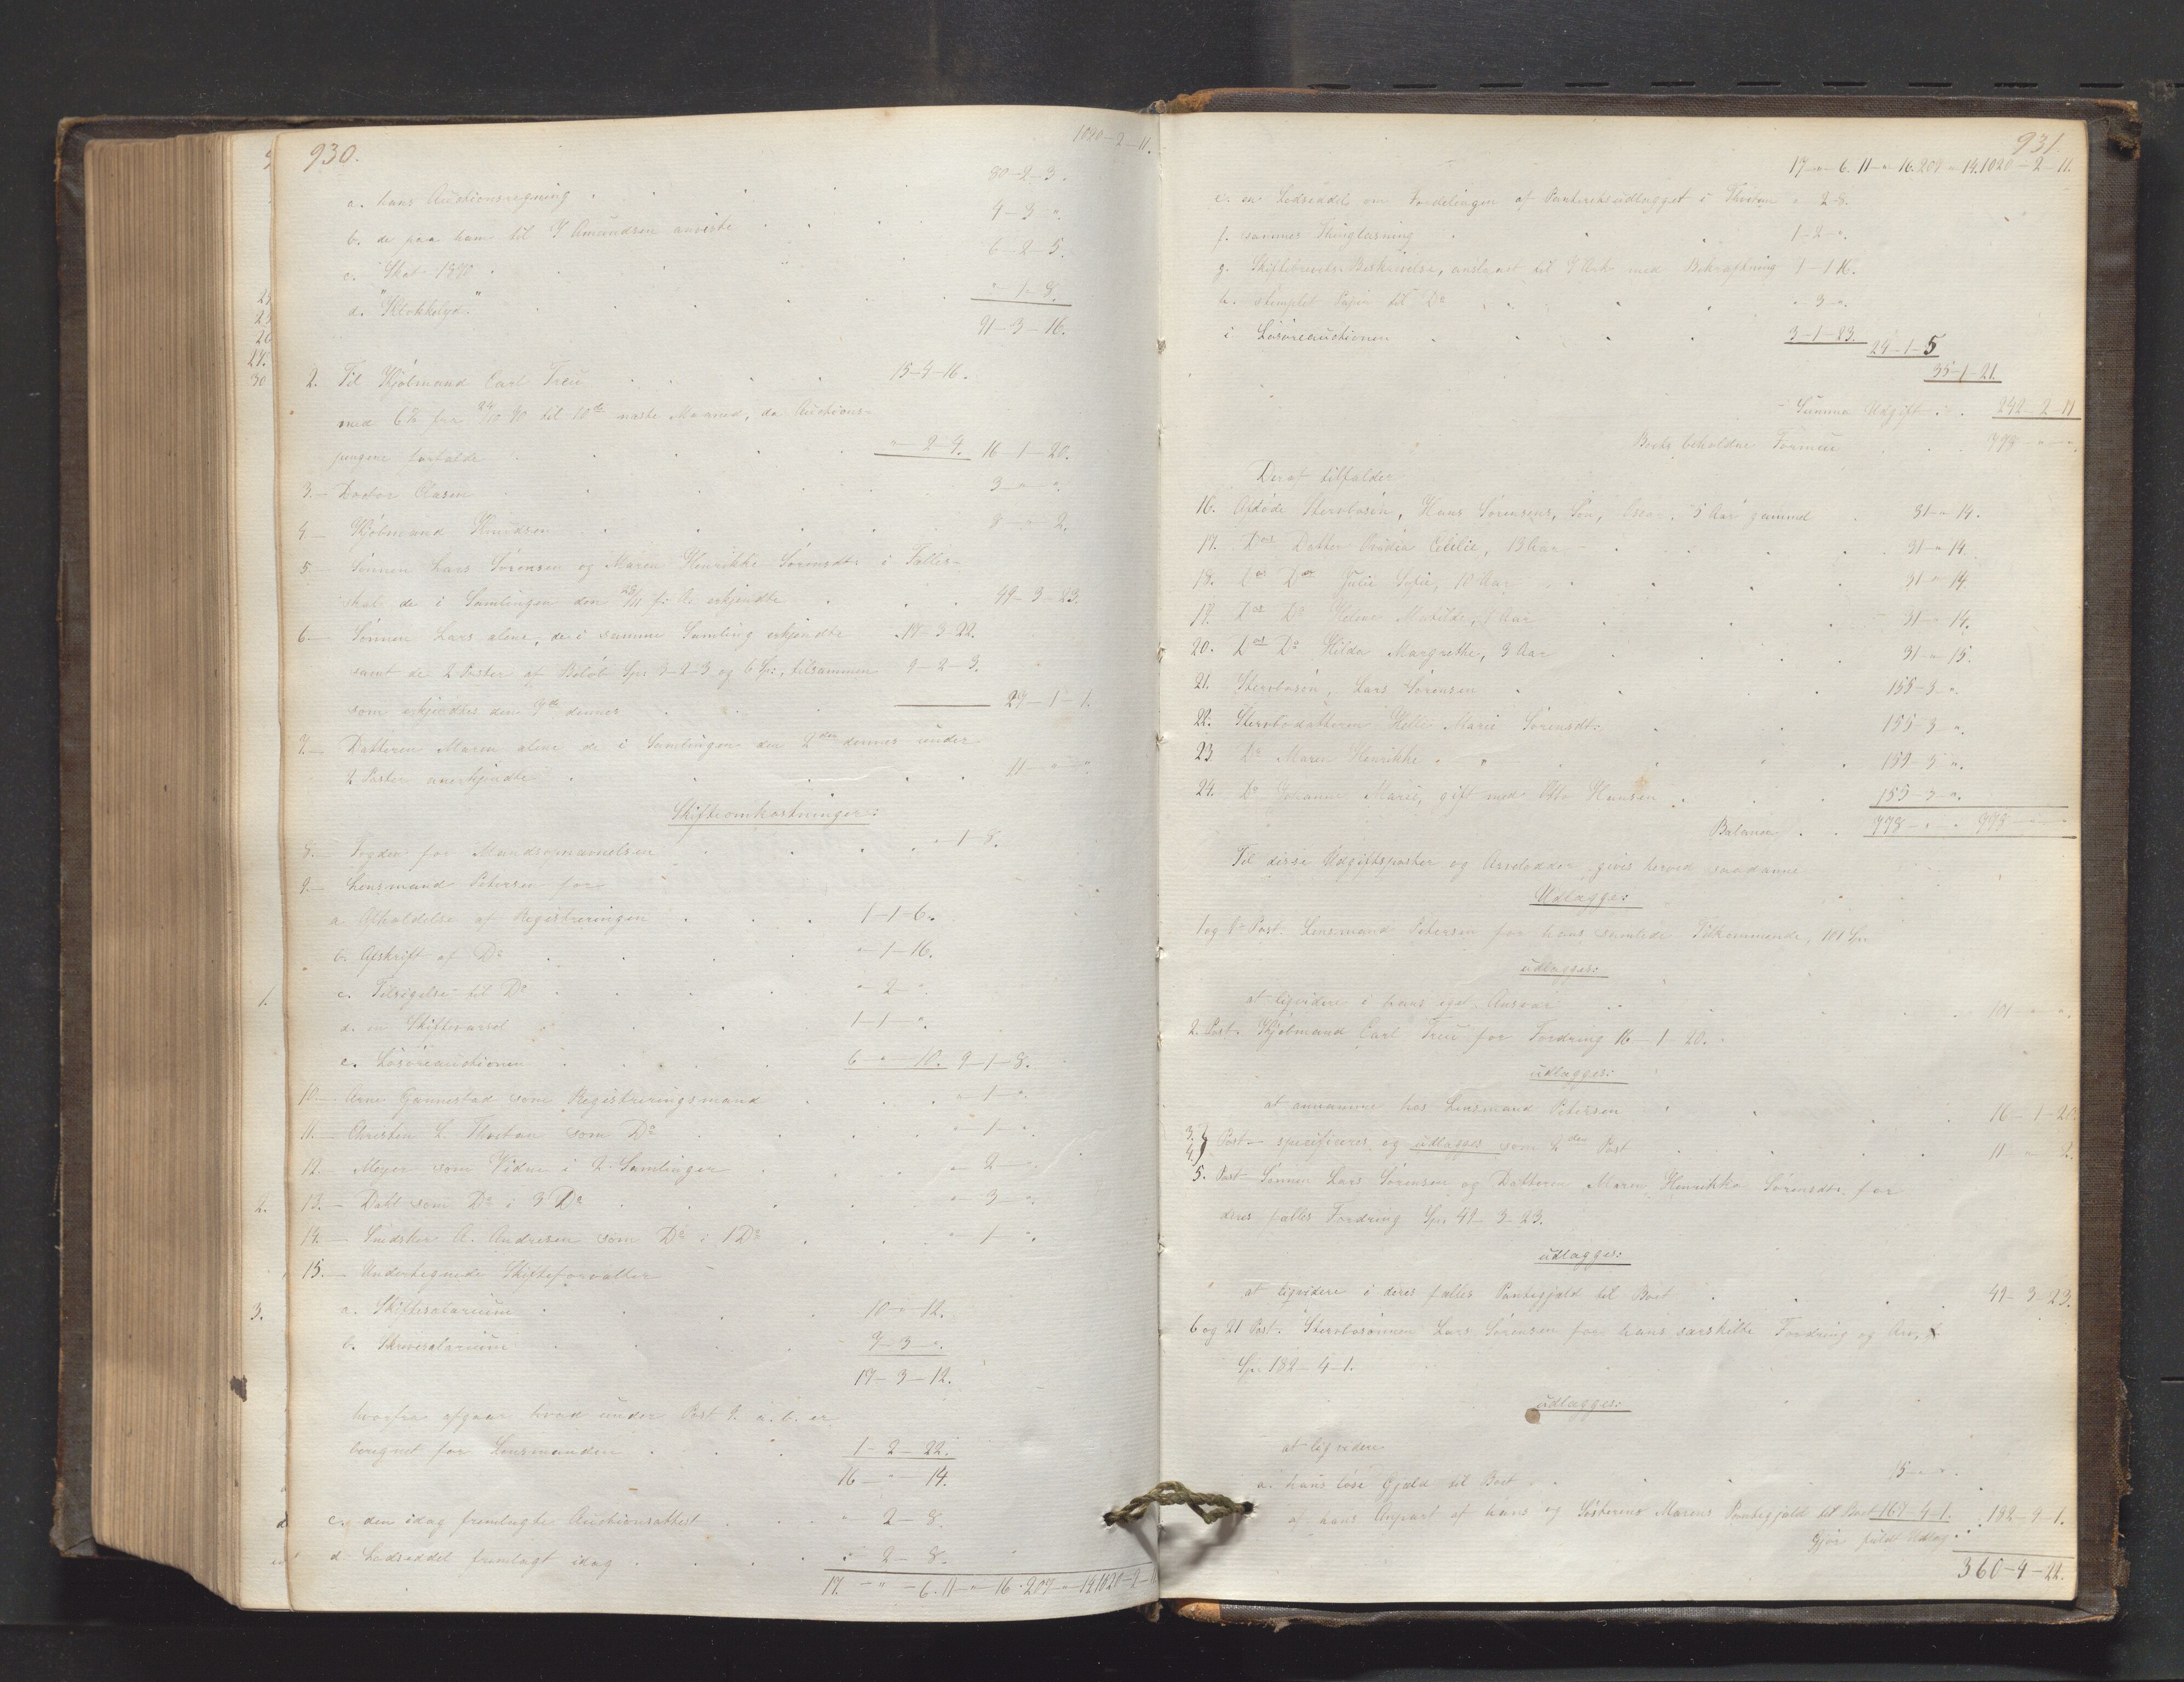 930.
1020-2-11.
a. hans Auctionsregning . 80-2-3.
b. de paa ham til J Amundsen anviste 4-3-".
c. Skat 1870 . 6-2-5.
d. "Klokketold" "-1-8.
91-3-16.
2. Til Kjøbmand Carl Treu 15-4-16.
med 6% fra 24/10 70 til 10de næste Maaned, da Auctions-
pengene forfalde "-2-4. 16-1-20.
3.- Doctor Clasen 3-"-".
4- Kjøbmand Knudsen 8-"-2.
5.- Sønnen Lars Sørensen og Maren Henrikke Sørensdtr i Fælles-
skab de i Samlingen den 28/11 f. A. erkjendte 49-3-23.
6.- Sønnen Lars alene, de i samme Samling erkjendte 17-3-22.
samt de 2 Poster af Beløb Sp. 3-2-3 og 6 Sp., tilsammen 9-2-3.
som erkjendtes den 14de dennes 27-1-1.
7.- Datteren Maren alene de i Samlingen den 2den dennes under
2 Poster anerkjendte 11-"-".
Skifteomkostninger:
8.- Fogden for Mandsopnævnelsen "-1-8.
9.- Lensmand Petersen for
a. Afholdelse af Registreringen 1-1-6.
b. Afskrift af Do "-1-16.
c. Tilsigelse til Do "-2-".
d. en Skiftevarsel 1-1-".
e. Løsøreauctionen 6-"-10. 9-1-8.
10.- Arne Gjennestad som Registreringsmand "-1-".
11.- Christen L. Thveitan som Do "-1-".
12.- Meyer som Vidne i 2 Samlinger "-2-".
13.- Dahl som Do i 3 Do "-3-".
14.- Snedker A. Andresen som Do i 1 Do "-1-".
15.- Undertegnede Skifteforvalter
a. Skiftesalarium 10-"-12.
b. Skrivesalarium 7-3-".
17-3-12.
hvorfra afgaar hvad under Post 9 a. b. er
beregnet for Lensmanden 1-2-22.
16-"-14.
c. den idag fremlagte Auctionsattest "-2-8.
d. Lodseddel fremlagt idag "-2-8.
17-"-6. 11-"-16. 207-"-14. 1020-2-11
931.
17-"-6. 11-"-16. 207-"-14. 1020-2-11.
e. en Lodseddel om Fordelingen af Panteretsudlægget i Thveitan "-2-8.
f. sammes Thinglæsning 1-2-".
g. Skiftebrevets Beskrivelse, anslaaet til 7 Ark med Bekræftning 1-1-16.
h. stemplet Papir til Do "-3-".
i Løsøreauctionen 3-1-23. 24-1-5
35-1-21.
Summa Udgift . . 242-2-11
Boets beholdne Formue 778-"-".
Deraf tilfalder
16. Afdøde Sterbosøn, Hans Sørensens, Søn, 5 Aar gammel 31-"-14.
17. Des Datter Ovidia Cecilie, 13 Aar 31-"-14.
18. Des Do Julie Sofie, 10 Aar 31-"-14.
19. Des Do Helene Matilde, 7 Aar 31-"-14.
20. Des Do Hilda Margrethe, 3 Aar 31-"-15.
21. Sterbosøn, Lars Sørensen 155-3-".
22. Sterbodatteren Marie Sørensdtr 155-3-".
23 Do Maren Henrikke . " 155-3-".
24. Do Johanne Marie, gift med Otto Hansen 155-3-".
Balance . . 778-"-". 778-"-"
Til disse Udgiftsposter og Arvelodder gives herved saadanne
Udlægge:
1 og 9de Post. Lensmand Petersen for hans samlede Tilkommende, 101 Sp
udlægges:
at liqvidere i hans eget Ansvar 101-"-".
2. Post. Kjøbmand Carl Treu for Fordring 16-1-20.
udlægges:
at annamme hos Lensmand Petersen 16-1-20
3. 4. } Post- specificeres og udlægges som 2den Post 11-"-2.
5. Post Sønnen Lars Sørensen og Datteren Maren Henrikke Sørensdtr for
deres fælles Fordring Sp. 49-3-23.
udlægges:
at liqvidere i deres fælles Pantegjæld til Boet 49-3-23.
6 og 21 Post. Sterbosønnen Lars Sørensen for hans særskilte Fordring og Arv,
Sp. 182-4-1.
udlægges:
at liqvidere
a. hans løse Gjæld til Boet 15-"-".
af hans Anpart af hans og Søsterens Marens Pantegjæld til Boet 167-4-1. 182-4-1.
Gjør fuldt Udlæg . . .
360-4-22.